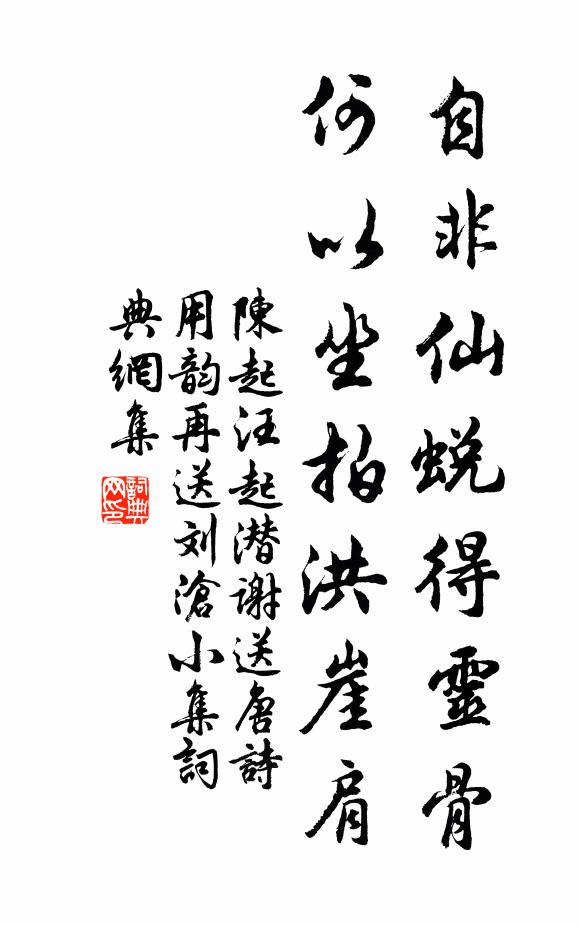 自非仙蜕得靈骨
何以坐拍洪崖肩
陳起汪起潜谢送唐詩
用韵再送刘滄小集詞
典網集
詞典网印